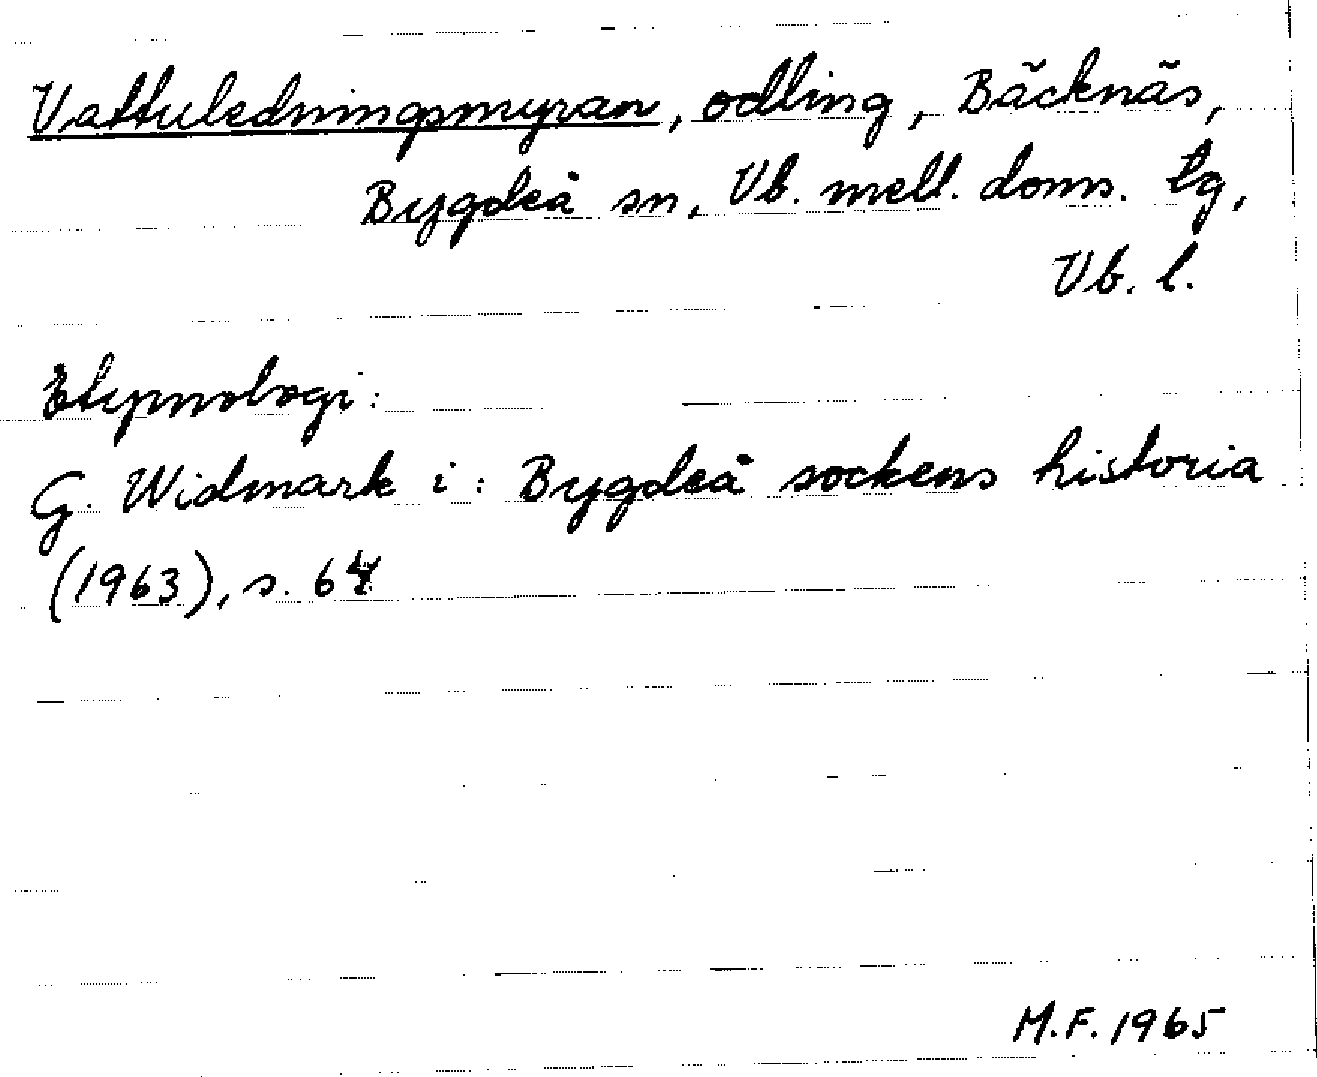 Vattuledningsmyran, odling, Bäcknäs,
Bygdeå sn, Vb. mell. doms. tg,
Vb. l.
Etymologi:
G. Widmark i: Bygdeå sockens historia
(1963), s.
M.F. 1965